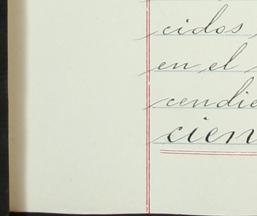 cidos
en el
cendie
cien